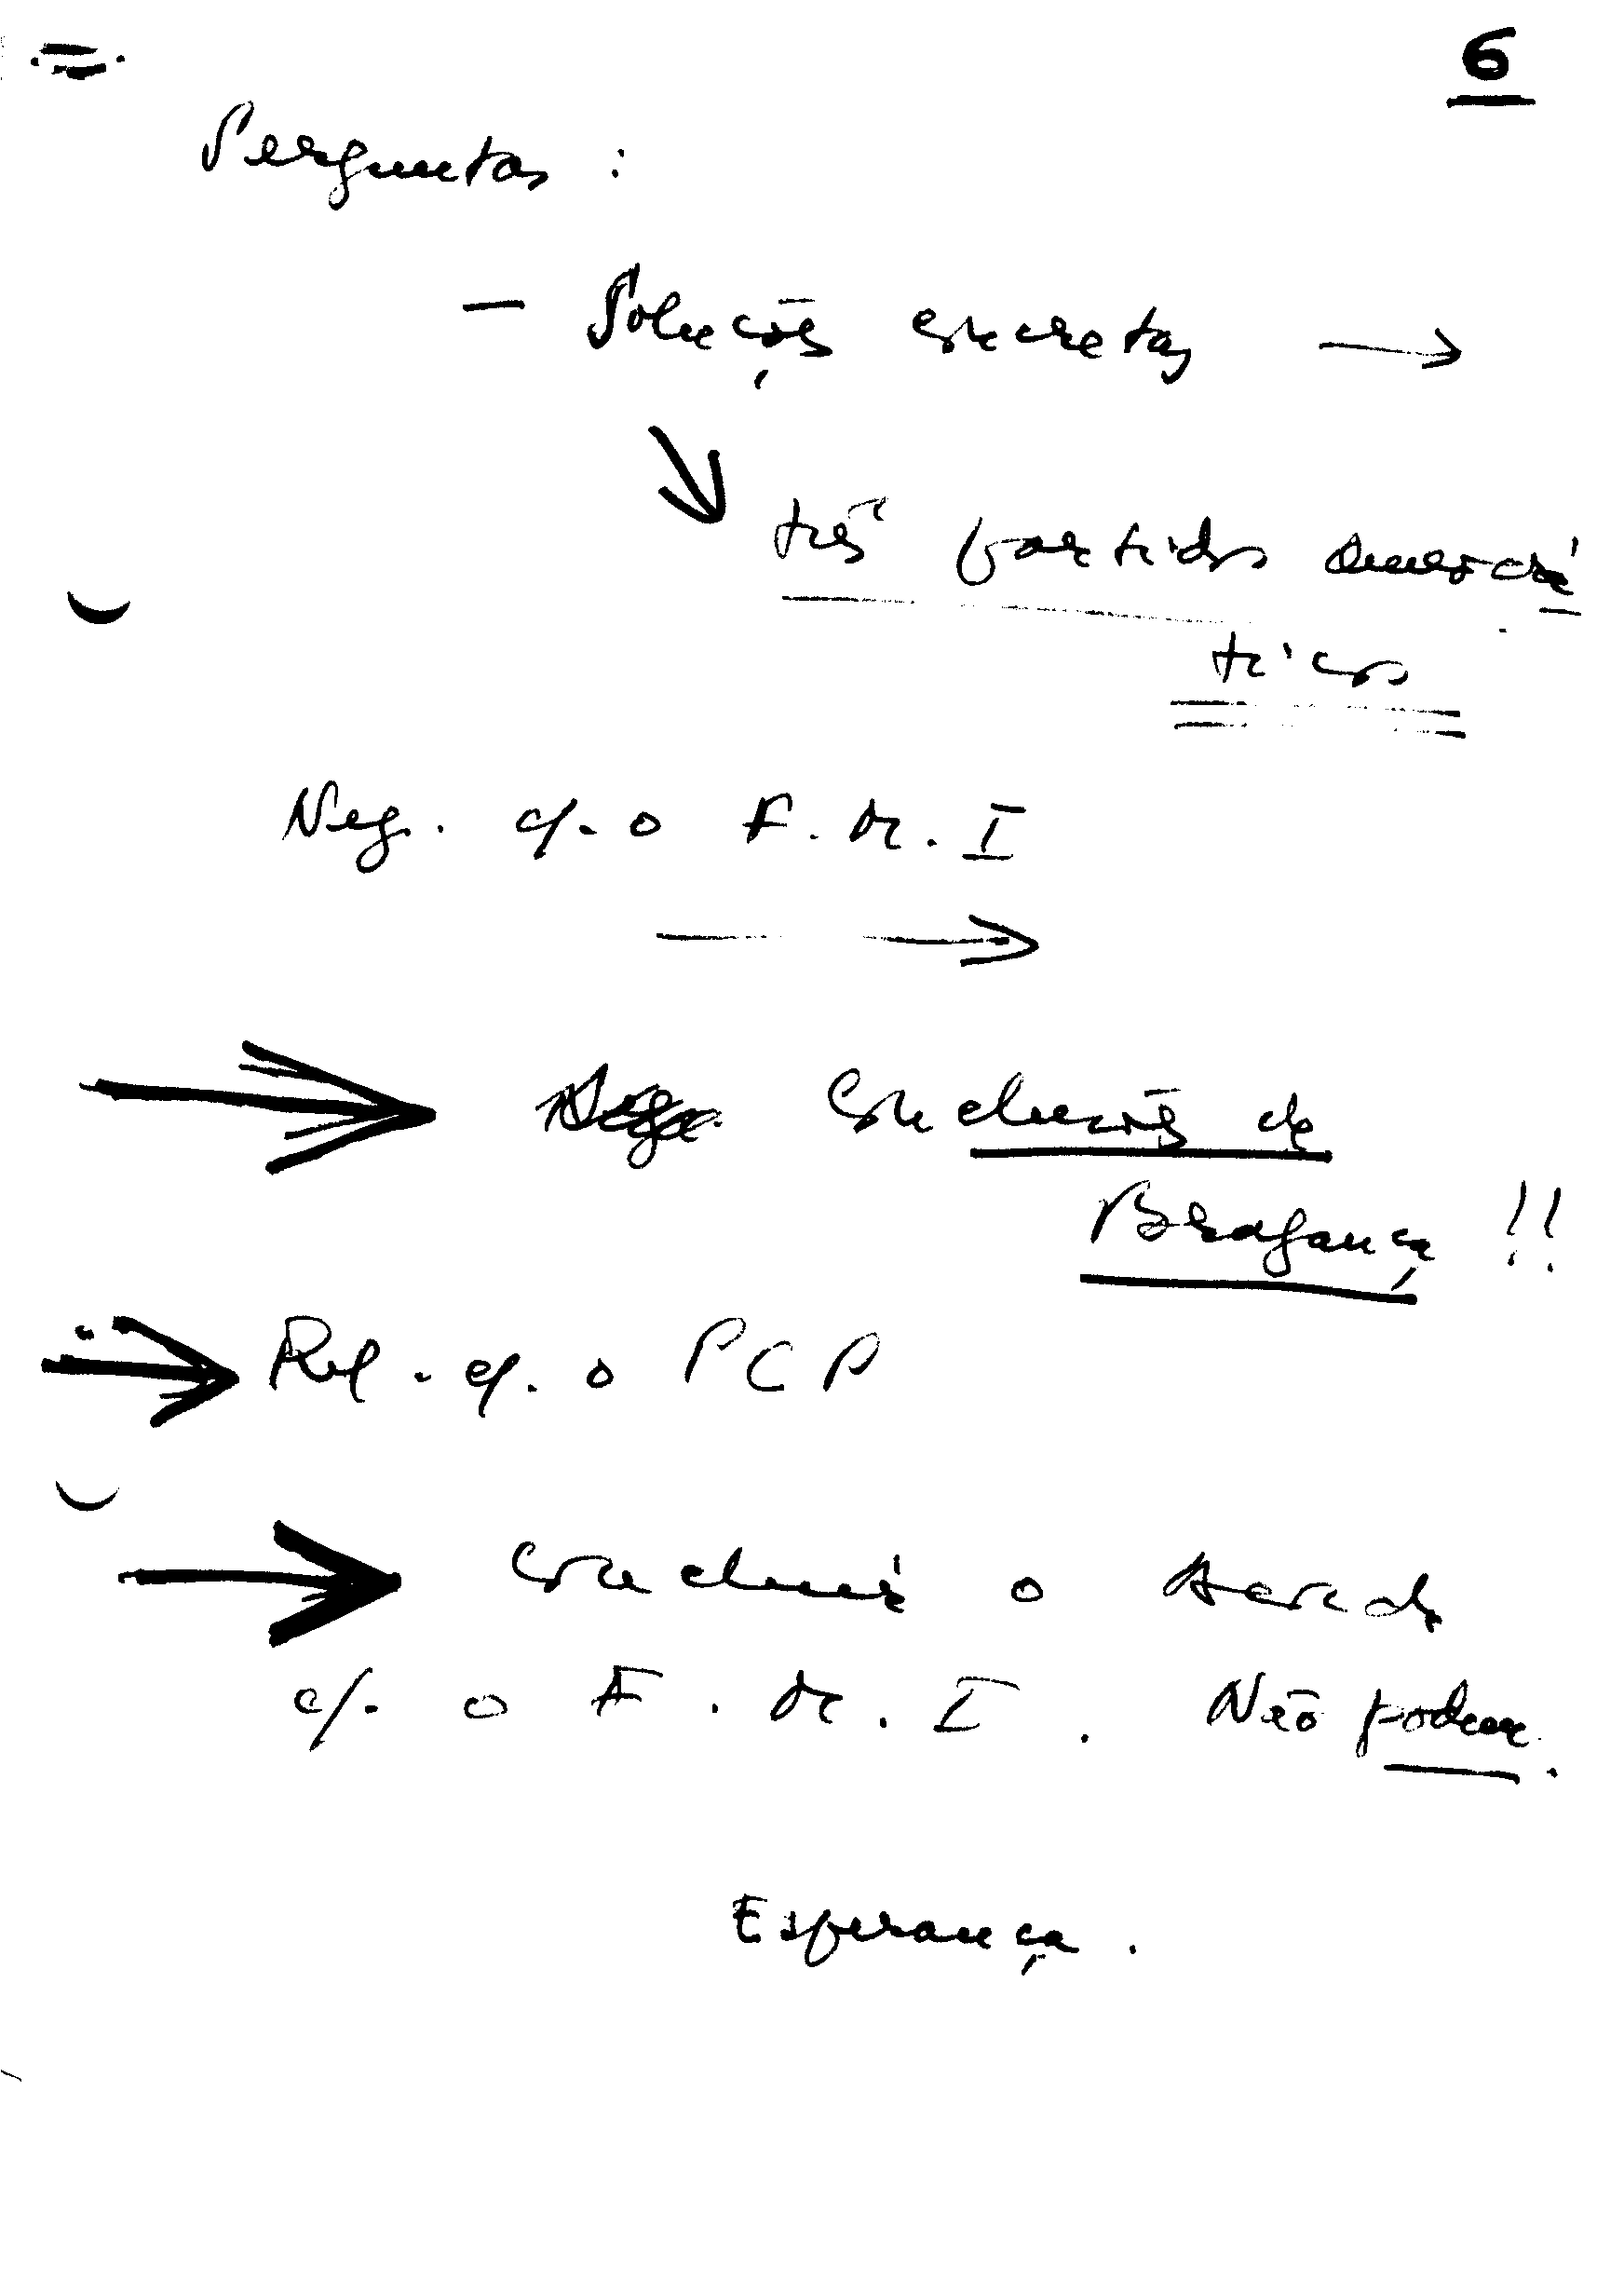 6
Perguntas :
— Soluções concretas →
três partidos democrá
ticos
Neg. c/. o F. M. I
→
→ Conclusões de
Bragança !!
→ Rel. c/. o PCP
→ Concluir o Acordo
c/. o F. M. I. Não podem.
Esperança.